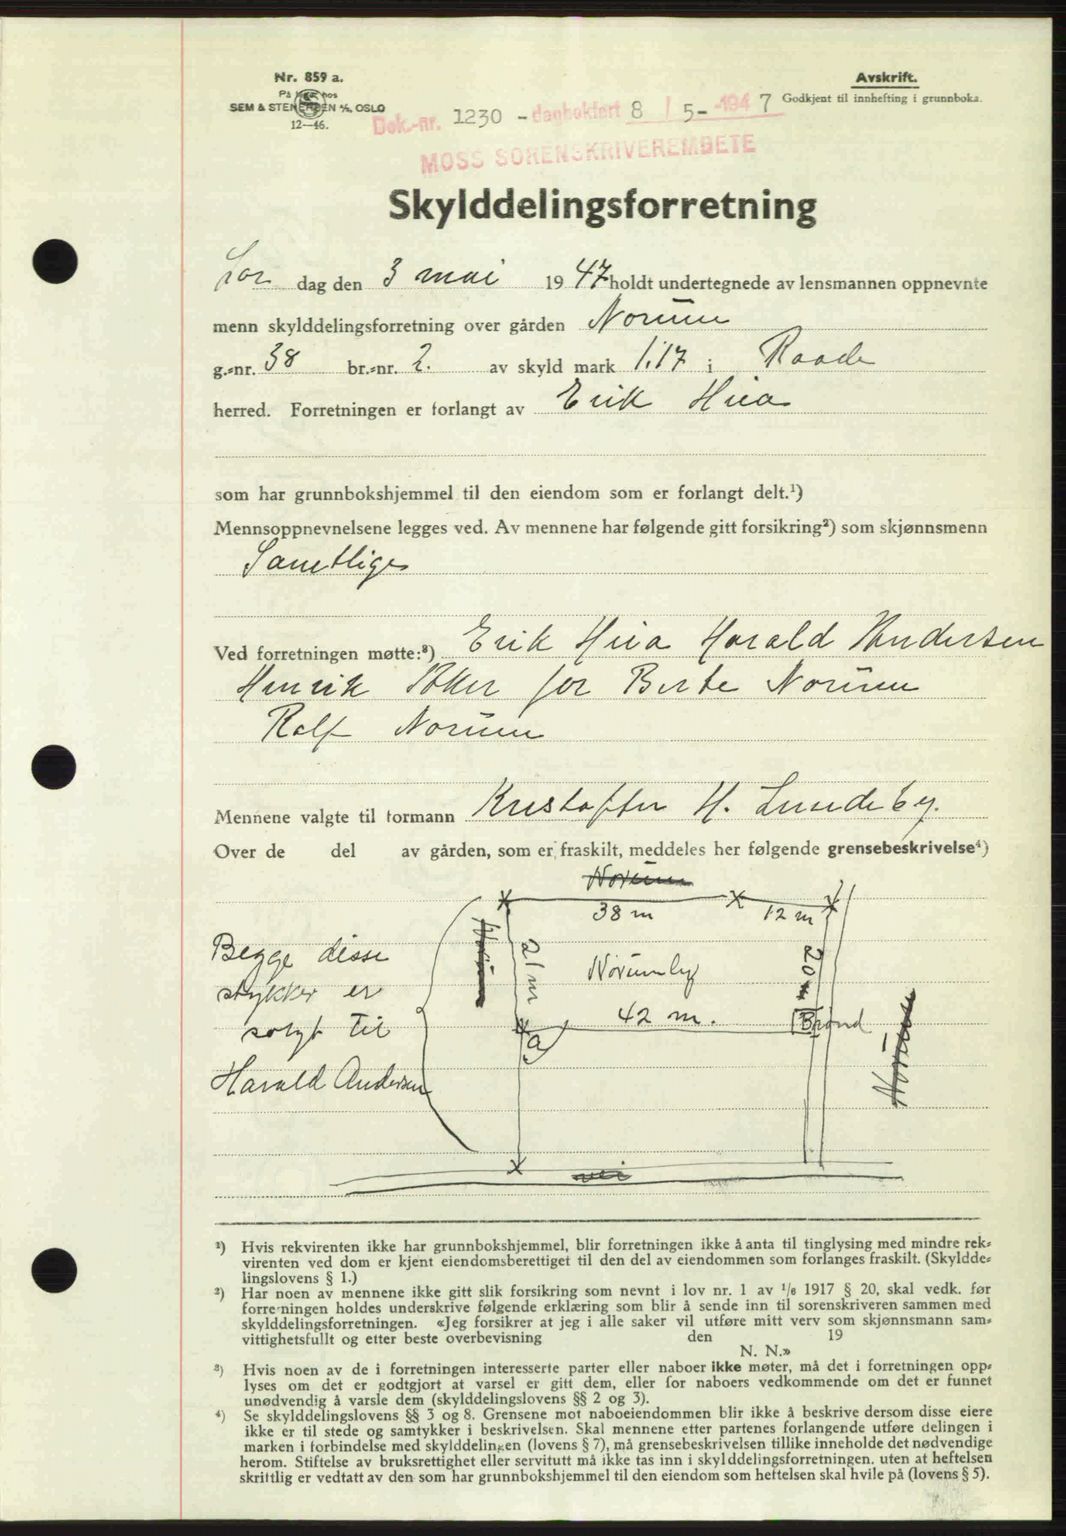 Nr. 859 a.
På lager hos
SEM & STENERSEN A/S, OSLO
12—46.
Avskrift.
Godkjent til innhefting i grunnboka.
Dok.-nr. 1230 - dagbokført 8 / 5- -1947
MOSS SORENSKRIVEREMBETE
Skylddelingsforretning
Lør dag den 3 mai 1947 holdt undertegnede av lensmannen oppnevnte
menn skylddelingsforretning over gården Norum
g.-nr. 38 br.-nr. 2. av skyld mark 1.17 i Raade
herred. Forretningen er forlangt av Erik Hua
som har grunnbokshjemmel til den eiendom som er forlangt delt.¹)
Mennsoppnevnelsene legges ved. Av mennene har følgende gitt forsikring²) som skjønnsmenn
Samtlige
Ved forretningen møtte:³) Erik Hua Harald Andersen
Henrik Aker for Berte Norum
Rolf Norum
Mennene valgte til formann Kristoffer H. Lundeby.
Over de del av gården, som er fraskilt, meddeles her følgende grensebeskrivelse⁴)
Norum
38 m 12 m
Begge disse
stykker er
solgt til
Harald Andersen
Norum
21 m
Norumlyg
20 m
42 m.
Brønd
a)
Norum
vei
¹) Hvis rekvirenten ikke har grunnbokshjemmel, blir forretningen ikke å anta til tinglysing med mindre rek-
virenten ved dom er kjent eiendomsberettiget til den del av eiendommen som forlanges fraskilt. (Skyldde-
lingslovens § 1.)
²) Har noen av mennene ikke gitt slik forsikring som nevnt i lov nr. 1 av 1/6 1917 § 20, skal vedk. før
forretningen holdes underskrive følgende erklæring som blir å sende inn til sorenskriveren sammen med
skylddelingsforretningen. «Jeg forsikrer at jeg i alle saker vil utføre mitt verv som skjønnsmann sam-
vittighetsfullt og etter beste overbevisning den 19
N. N.»
³) Hvis noen av de i forretningen interesserte parter eller naboer ikke møter, må det i forretningen opp-
lyses om det er godtgjort at varsel er gitt dem, eller for naboers vedkommende om det er funnet
unødvendig å varsle dem (skylddelingslovens §§ 2 og 3).
⁴) Se skylddelingslovens §§ 3 og 8. Grensene mot naboeiendommen blir ikke å beskrive dersom disse eiere
ikke er til stede og samtykker i beskrivelsen. Skal mennene etter partenes forlangende utføre delingen i
marken i forbindelse med skylddelingen (lovens § 7), må grensebeskrivelsen tillike inneholde det nødvendige
herom. Stiftelse av bruksrettighet eller servitutt må ikke tas inn i skylddelingsforretningen, uten at heftelsen
skriftlig er vedtatt av den som har grunnbokshjemmel til den eiendom som heftelsen skal hvile på (lovens § 5).